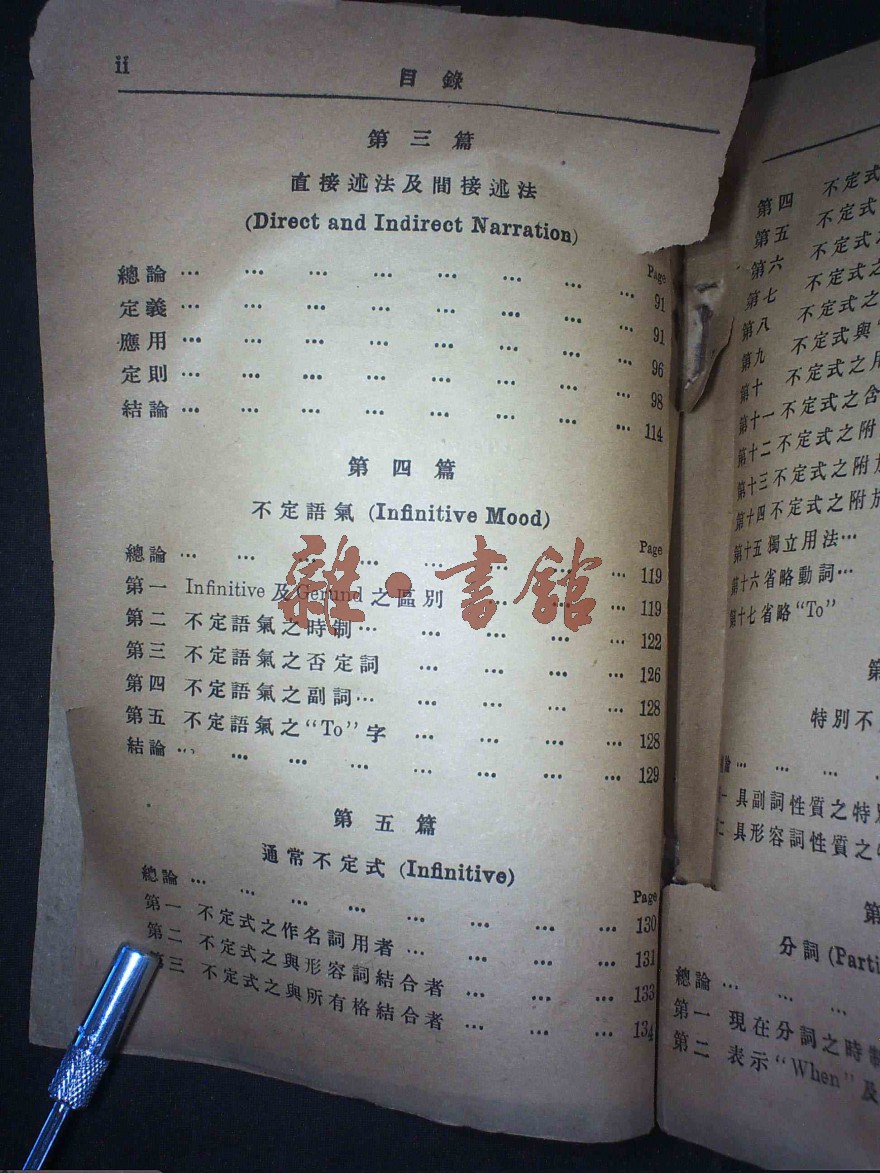 ii
目錄
第三篇
直接述法及間接述法
(Direct and Indirect Narration)
Page
總論 … … … … … … … … 91
定義 … … … … … … … … 91
應用 … … … … … … … … 96
定則 … … … … … … … … 98
結論 … … … … … … … … 114
第四篇
不定語氣 (Infinitive Mood)
Page
總論 … … … … … … … … 119
第一 Infinitive 及 Gerund 之區別 … … … 119
第二 不定語氣之時制… … … … 122
第三 不定語氣之否定詞 … … … … 126
第四 不定語氣之副詞… … … … 128
第五 不定語氣之“To”字 … … … … 128
結論 … … … … … … … … 129
第五篇
通常不定式 (Infinitive)
Page
總論 … … … … … … … … 130
第一 不定式之作名詞用者 … … … … 131
第二 不定式之與形容詞結合者 … … … 133
第三 不定式之與所有格結合者 … … … 134
雜·書館
第四 不定式
第五 不定式
第六 不定式
第七 不定式之
第八 不定式之
第九 不定式與
第十 不定式之
第十一 不定式之含
第十二 不定式之附
第十三 不定式之附
第十四 不定式之附於
第十五 獨立用法…
第十六 省略動詞…
第十七 省略“To”
特別不
論 … … …
具副詞性質之特
具形容詞性質之
第
分詞 (Parti
總論 … … …
第一 現在分詞之時制
第二 表示“When”及